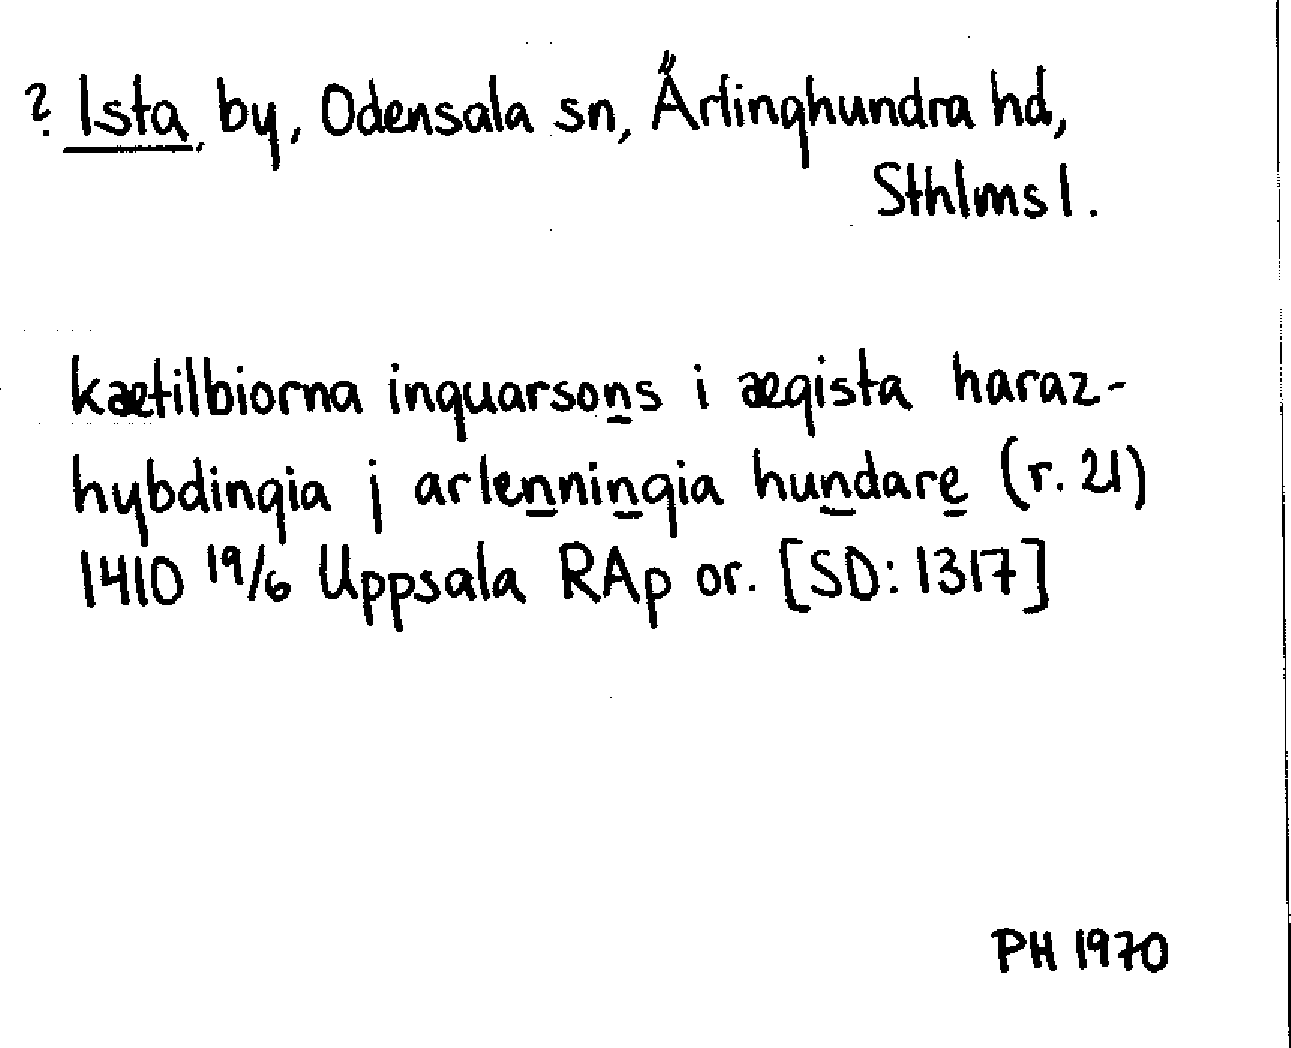 ? Ista, by, Odensala sn, Ärlinghundra hd,
Sthlms l.
kætilbiorna inguarsons i ægista haraz-
hybdingia j arlenningia hundare (r. 21)
1410 19/6 Uppsala RAp or. [SD: 1317]
PH 1970